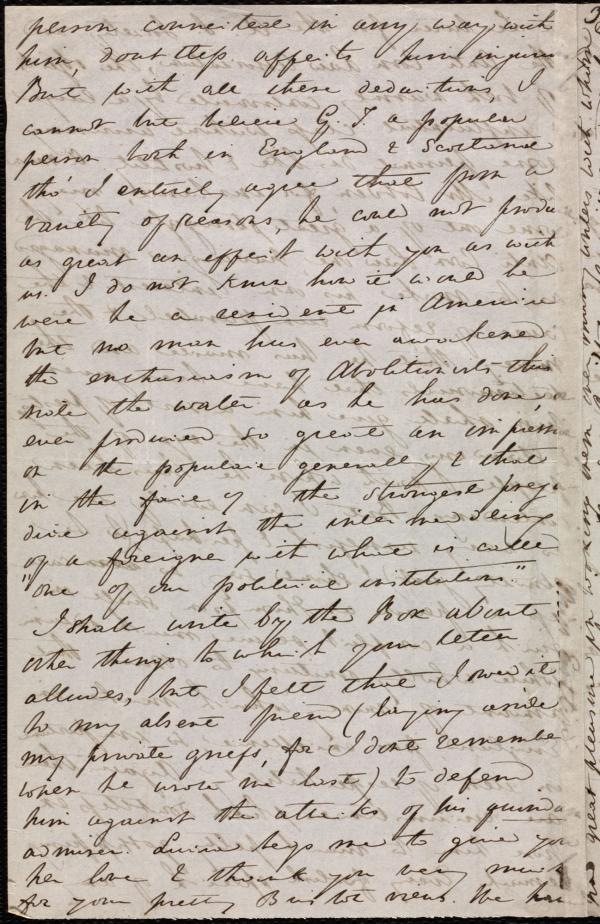 person connected in any way with
him, doubtless affects him injuri
But with all these deductions, I
cannot but believe G. T. a popular
person both in England & Scotland
tho' I entirely agree that from a
variety of reasons, he could not produ
as great an effect with you as with
us. I do not know how it would be
were he a resident in America
but no man has ever awakened
the enthusiasm of Abolitionists this
side the water as he has done,
ever produced so great an impress
on the populace generally & that
in the face of the strongest preju
dice against the intermeddling
of a foreigner with what is calle
"one of our political institutions."
I shall write by the Box about
other things to which your letter
alludes, but I felt that I owed it
to my absent friend (laying aside
my private griefs, for I dont remember
when he wrote me last) to defend
him against the attacks of his
admirer. Louisa begs me to give you
her love & thank you very much
for your pretty Bristol views. We hav
great pleasure in